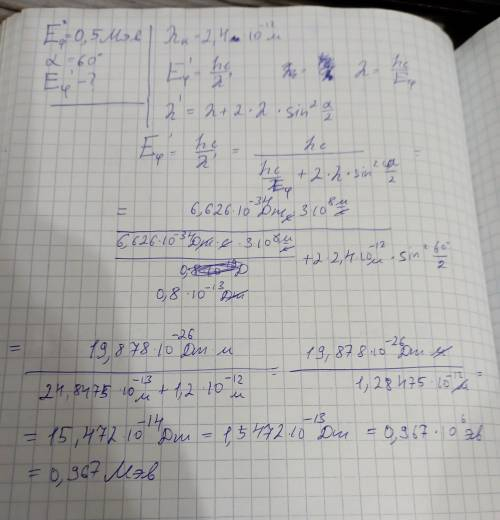 Eφ = 0,5 Мэв
α = 60°
Eφ' - ?
λк = 2,4 · 10⁻¹² м
Eφ' = hc/λ' λ = hc/Eφ
λ' = λ + 2 · λ · sin² α/2
Eφ' = hc/λ' = hc / (hc/Eφ + 2 · λ · sin² α/2) =
= 6,626 · 10⁻³⁴ Дж с · 3 · 10⁸ м/с / (6,626 · 10⁻³⁴ Дж · с · 3 · 10⁸ м/с / 0,8 · 10⁻¹³ Дж + 2 · 2,4 · 10⁻¹² м · sin² 60°/2)
= 19,878 · 10⁻²⁶ Дж м / (24,8475 · 10⁻¹³ м + 1,2 · 10⁻¹² м) = 19,878 · 10⁻²⁶ Дж м / 1,28475 · 10⁻¹² м =
= 15,472 · 10⁻¹⁴ Дж = 1,5472 · 10⁻¹³ Дж = 0,967 · 10⁶ эв
= 0,967 Мэв